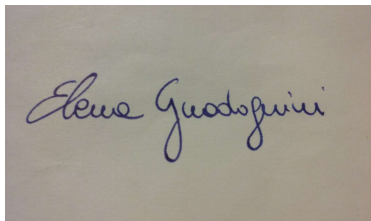 Elena Guadagnini